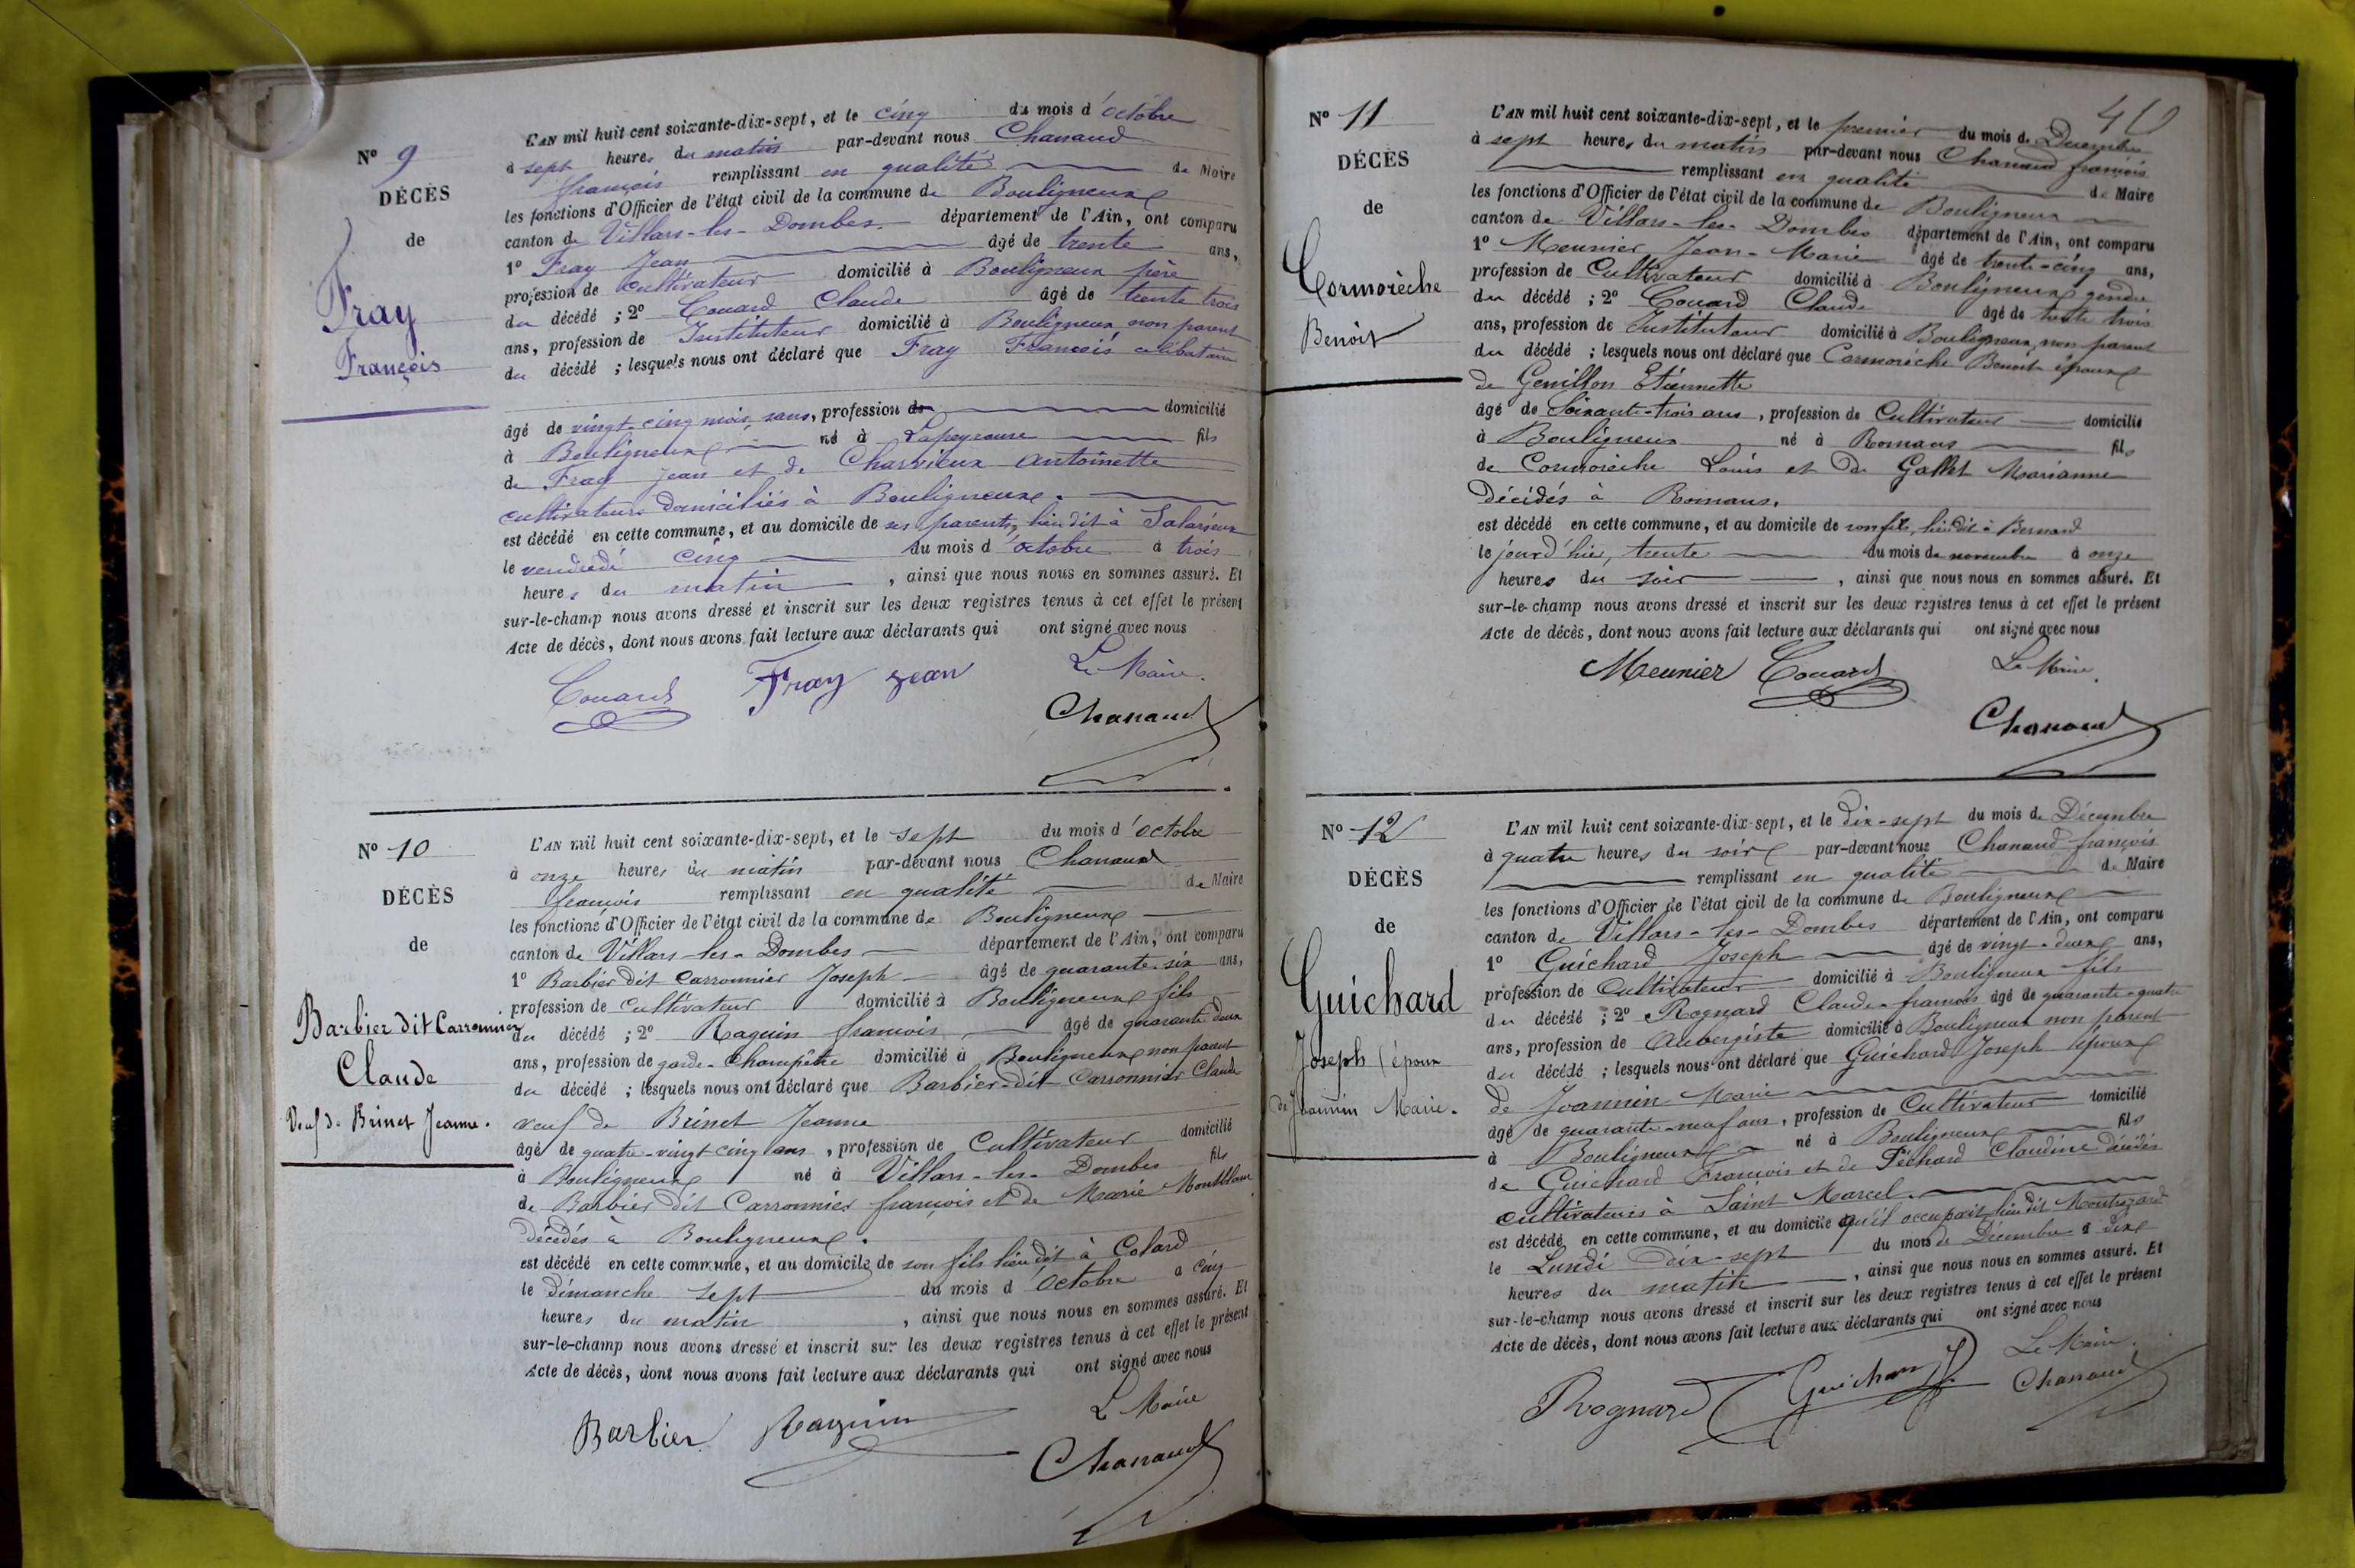 N° 9
DÉCÈS
de
Fray
François
L'AN mil huit cent soixante-dix-sept, et le cinq du mois d'octobre
à sept heures du matin par-devant nous Chanaud
françois remplissant en qualité de Maire
les fonctions d'Officier de l'état civil de la commune de Bouligneux
canton de Villars-les-Dombes département de l'Ain, ont comparu
1° Fray Jean âgé de trente ans,
profession de cultivateur domicilié à Bouligneux père
du décédé ; 2° Couard Claude âgé de trente trois
ans, profession de Instituteur domicilié à Bouligneux non parent
du décédé ; lesquels nous ont déclaré que Fray François célibataire
âgé de vingt-cinq mois sans, profession de domicilié
à Bouligneux né à Lapeyrouse fils
de Fray Jean et de Charvieux Antoinette
cultivateurs domiciliés à Bouligneux.
est décédé en cette commune, et au domicile de ses parents, lieu dit à Salarieux
le vendredi cinq du mois d'octobre à trois
heures du matin, ainsi que nous nous en sommes assuré. Et
sur-le-champ nous avons dressé et inscrit sur les deux registres tenus à cet effet le présent
Acte de décès, dont nous avons fait lecture aux déclarants qui ont signé avec nous
Couard Fray jean Le Maire.
Chanaud
N° 10
DÉCÈS
de
Barbier dit Carronnier
Claude
Veuf de Brinet Jeanne.
L'AN mil huit cent soixante-dix-sept, et le sept du mois d'octobre
à onze heures du matin par-devant nous Chanaud
françois remplissant en qualité de Maire
les fonctions d'Officier de l'état civil de la commune de Bouligneux
canton de Villars-les-Dombes département de l'Ain, ont comparu
1° Barbier dit Carronnier Joseph âgé de quarante-six ans,
profession de cultivateur domicilié à Bouligneux fils
du décédé ; 2° Raguin françois âgé de quarante deux
ans, profession de garde-Champêtre domicilié à Bouligneux non parent
du décédé ; lesquels nous ont déclaré que Barbier-dit Carronnier Claude
veuf de Brinet Jeanne
âgé de quatre-vingt-cinq ans, profession de Cultivateur domicilié
à Bouligneux né à Villars-les-Dombes fils
de Barbier dit Carronnier françois et de Marie Montblanc
décédés à Bouligneux.
est décédé en cette commune, et au domicile de son fils lieu dit à Colard
le dimanche sept du mois d'Octobre à cinq
heures du matin, ainsi que nous nous en sommes assuré. Et
sur-le-champ nous avons dressé et inscrit sur les deux registres tenus à cet effet le présent
Acte de décès, dont nous avons fait lecture aux déclarants qui ont signé avec nous
Barbier Raguin Le Maire
Chanaud
N° 11
DÉCÈS
de
Cormorèche
Benoît
L'AN mil huit cent soixante-dix-sept, et le premier du mois de Décembre
à sept heures du matin par-devant nous Chanaud françois
remplissant en qualité de Maire
les fonctions d'Officier de l'état civil de la commune de Bouligneux
canton de Villars-les-Dombes département de l'Ain, ont comparu
1° Meunier Jean-Marie âgé de trente-cinq ans,
profession de Cultivateur domicilié à Bouligneux gendre
du décédé ; 2° Couard Claude âgé de trente trois
ans, profession de Instituteur domicilié à Bouligneux, non parent
du décédé ; lesquels nous ont déclaré que Cormorèche Benoît époux
de Genillon Etiennette
âgé de Soixante-trois ans, profession de Cultivateur domicilié
à Bouligneux né à Romans fils
de Cormorèche Louis et de Gallet Marianne
Décédés à Romans.
est décédé en cette commune, et au domicile de son fils, lieu dit à Bernard
le jourd'hier, trente du mois de novembre à onze
heures du soir, ainsi que nous nous en sommes assuré. Et
sur-le-champ nous avons dressé et inscrit sur les deux registres tenus à cet effet le présent
Acte de décès, dont nous avons fait lecture aux déclarants qui ont signé avec nous
Meunier Couard Le Maire.
Chanaud
N° 12
DÉCÈS
de
Guichard
Joseph (époux
de Joannin Marie.
L'AN mil huit cent soixante-dix-sept, et le dix-sept du mois de Décembre
à quatre heures du soir par-devant nous Chanaud françois
remplissant en qualité de Maire
les fonctions d'Officier de l'état civil de la commune de Bouligneux
canton de Villars-les-Dombes département de l'Ain, ont comparu
1° Guichard Joseph âgé de vingt-deux ans,
profession de Cultivateur domicilié à Bouligneux fils
du décédé ; 2° Rognard Claude-françois âgé de quarante-quatre
ans, profession de Aubergiste domicilié à Bouligneux non parent
du décédé ; lesquels nous ont déclaré que Guichard Joseph époux
de Joannin Marie
âgé de quarante-neuf ans, profession de Cultivateur domicilié
à Bouligneux né à Bouligneux fils
de Guichard François et de Péchard Claudine décédés
cultivateurs à Saint Marcel.
est décédé en cette commune, et au domicile qu'il occupait lieu dit Montrozard
le Lundi dix-sept du mois de Décembre à dix
heures du matin, ainsi que nous nous en sommes assuré. Et
sur-le-champ nous avons dressé et inscrit sur les deux registres tenus à cet effet le présent
Acte de décès, dont nous avons fait lecture aux déclarants qui ont signé avec nous
Rognard Guichard Le Maire.
Chanaud